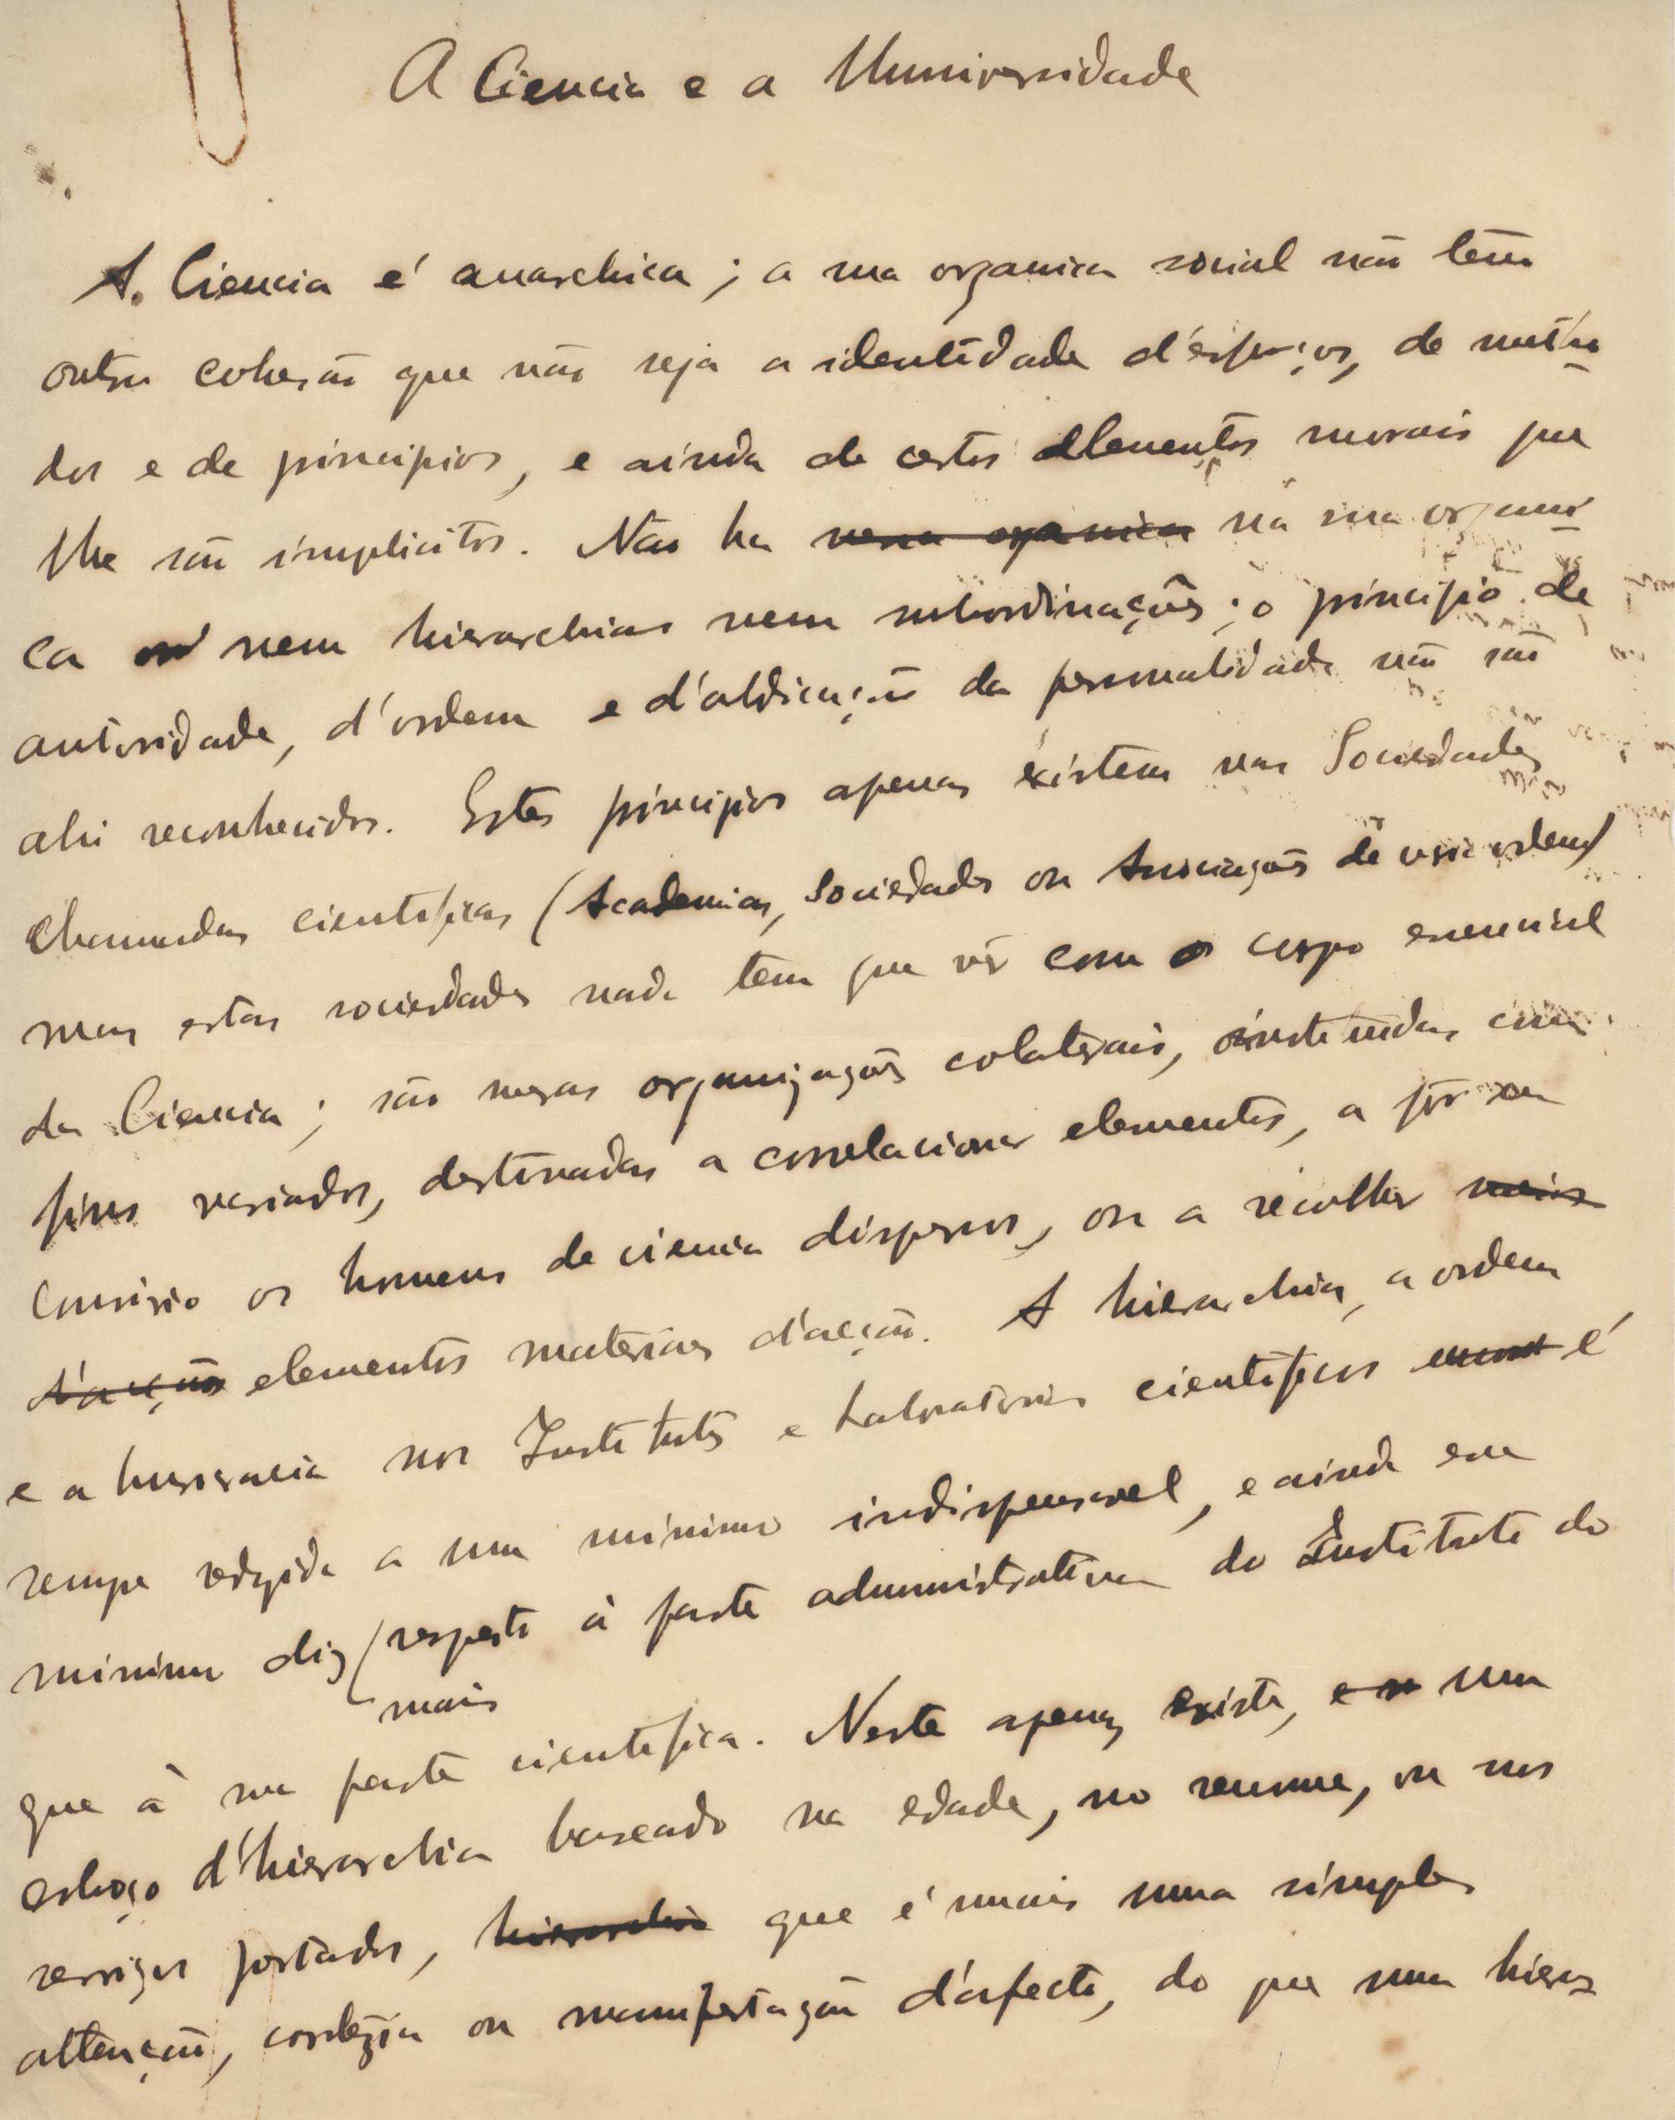 A Ciencia e a Universidade
A Ciencia é anarchica; a sua organica social não tem
outra cohesão que não seja a identidade d'esforços, de méto-
dos e de principios, e ainda de certos elementos morais que
lhe são implicitos. Não ha nem organica na sua organi-
ca nem hierarchias nem subordinações; o principio de
autoridade, d'ordem e d'abdicação da personalidade não são
ahi reconhecidos. Estes principios apenas existem nas Sociedades
chamadas cientificas (Academias, Sociedades ou Associações de varia ordem)
mas estas sociedades nada tem que vêr com o corpo essencial
da Ciencia; são meras organizações colaterais, instituidas com
fins variados, destinadas a correlacionar elementos, a pôr em
convivio os homens de ciencia dispersos, ou a recolher meios
d'acção elementos materiaes d'acção. A hierarchia, a ordem
e a burocracia nos Institutos e Laboratorios cientificos é
sempre redusida a um minimo indispensavel, e ainda esse
minimo diz respeito á parte administrativa do Instituto do
mais
que á sua parte cientifica. Neste apenas existe, um
esboço d'hierarchia baseado na edade, no renome, ou nos
serviços prestados, hierarchia que é mais uma simples
attenção, cortezia ou manifestação d'afecto, do que uma hierar-